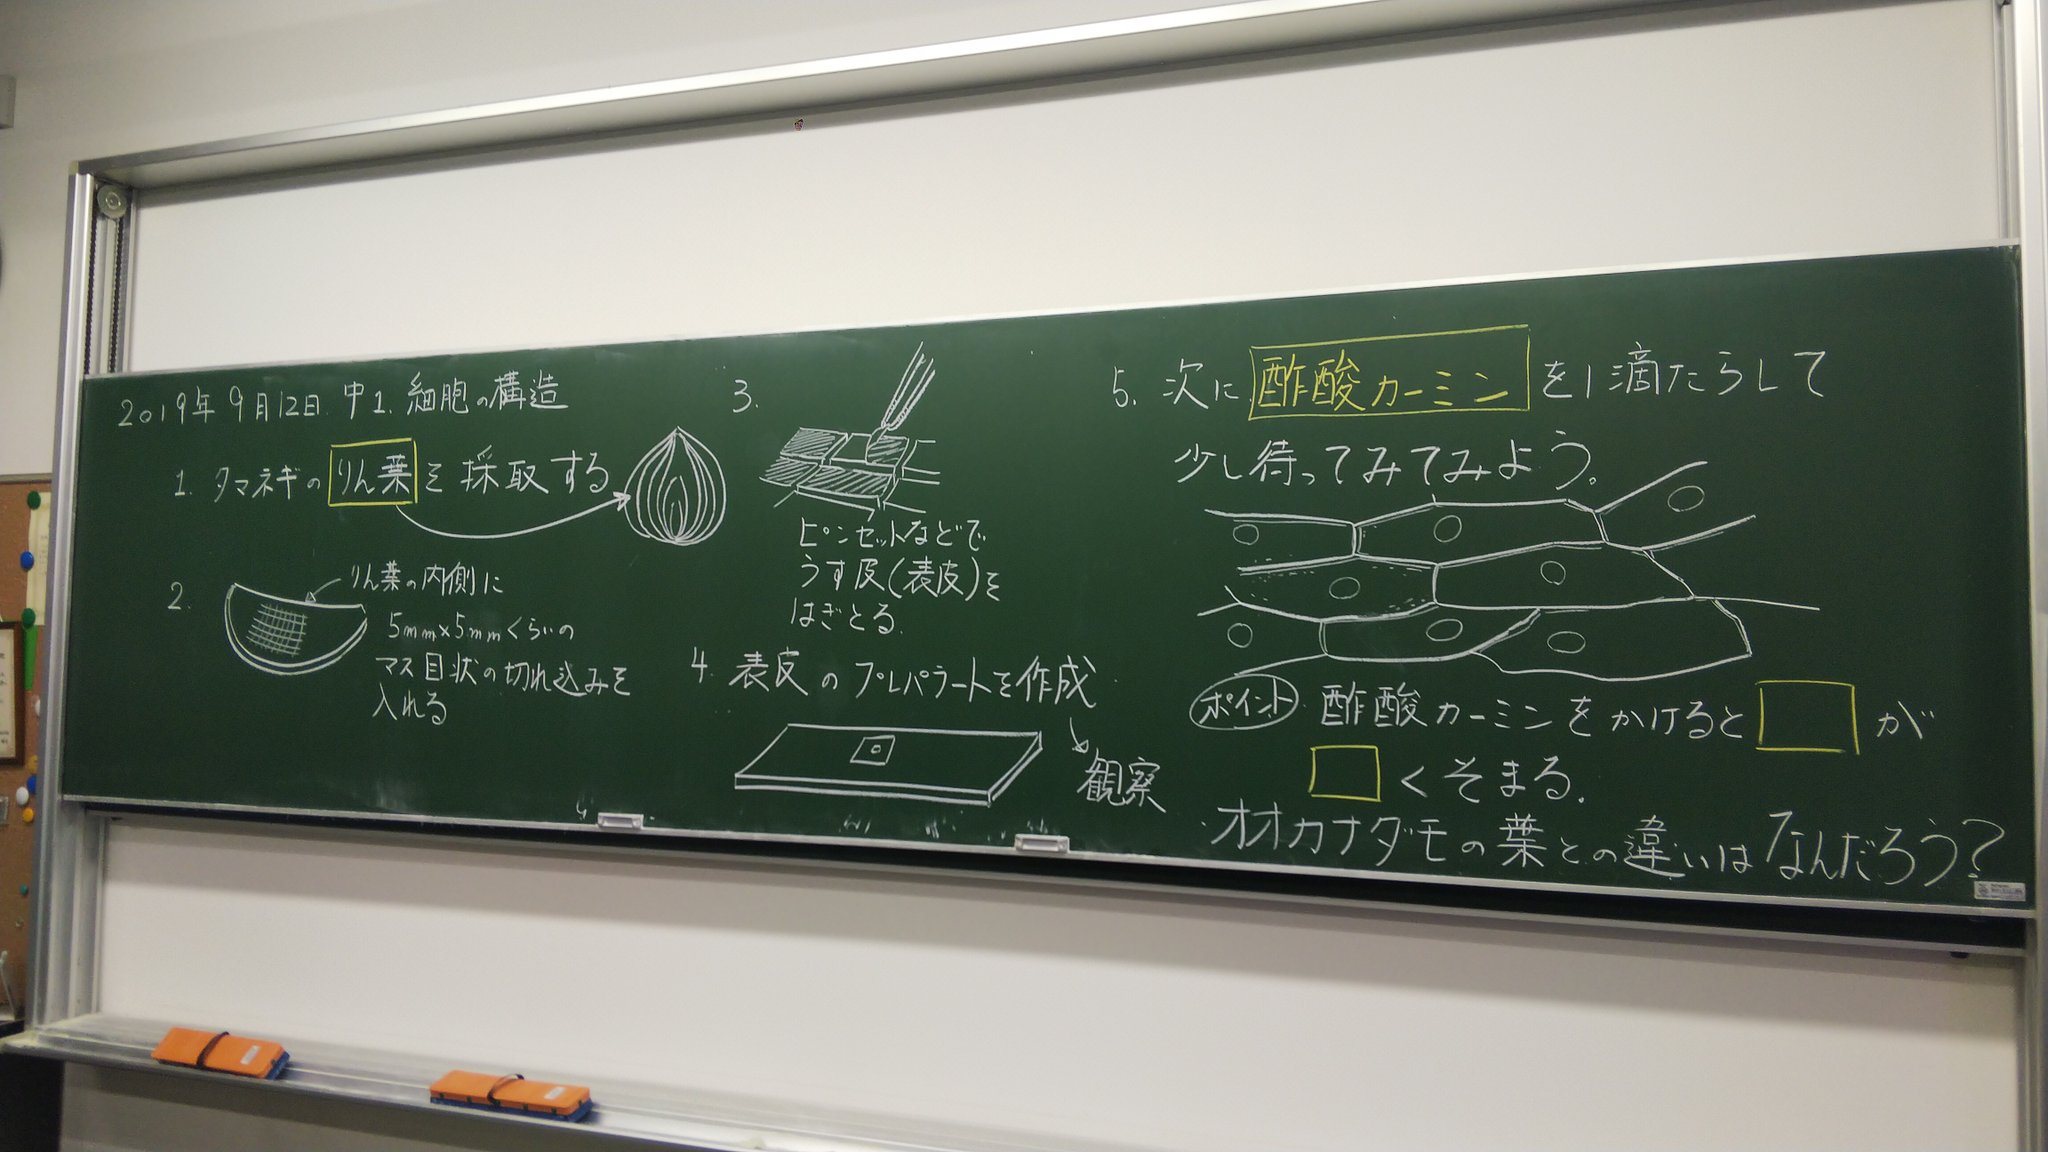 2019年9月12日 中1. 細胞の構造
1. タマネギのりん葉を採取する
2.
りん葉の内側に
5mm×5mmくらいの
マス目状の切れ込みを
入れる
3.
ピンセットなどで
うす皮(表皮)を
はぎとる.
4. 表皮のプレパラートを作成
観察
5. 次に酢酸カーミンを1滴たらして
少し待ってみてみよう。
ポイント 酢酸カーミンをかけると が
くそまる.
・オオカナダモの葉との違いはなんだろう?